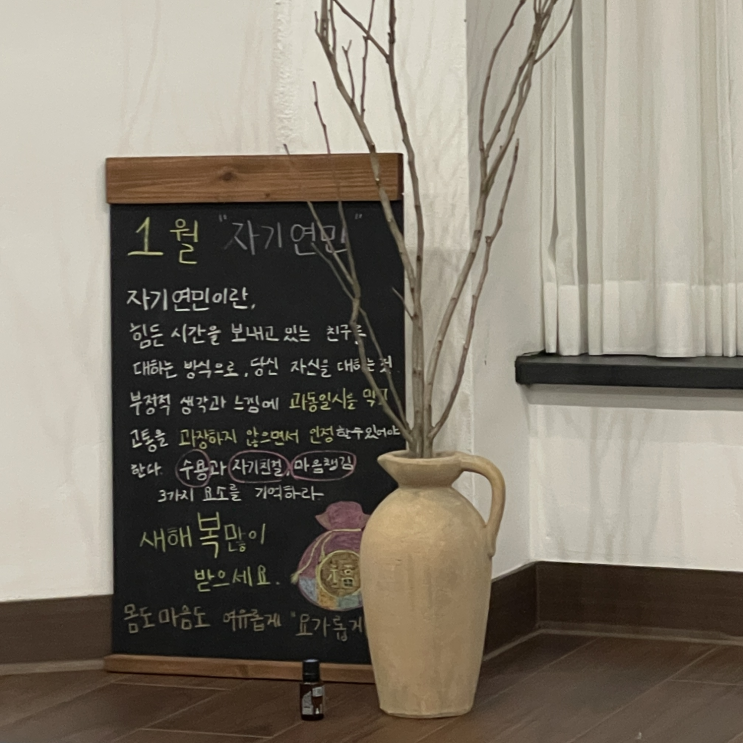 1월 "자기연민"
자기연민이란,
힘든 시간을 보내고 있는 친구를
대하는 방식으로, 당신 자신을 대하는 것.
부정적 생각과 느낌에 과동일시를 막고
고통을 과장하지 않으면서 인정할 수 있어야
한다. 수용과 자기친절, 마음챙김
3가지 요소를 기억하라
새해 복 많이
받으세요.
福
몸도 마음도 여유롭게 "요가롭게